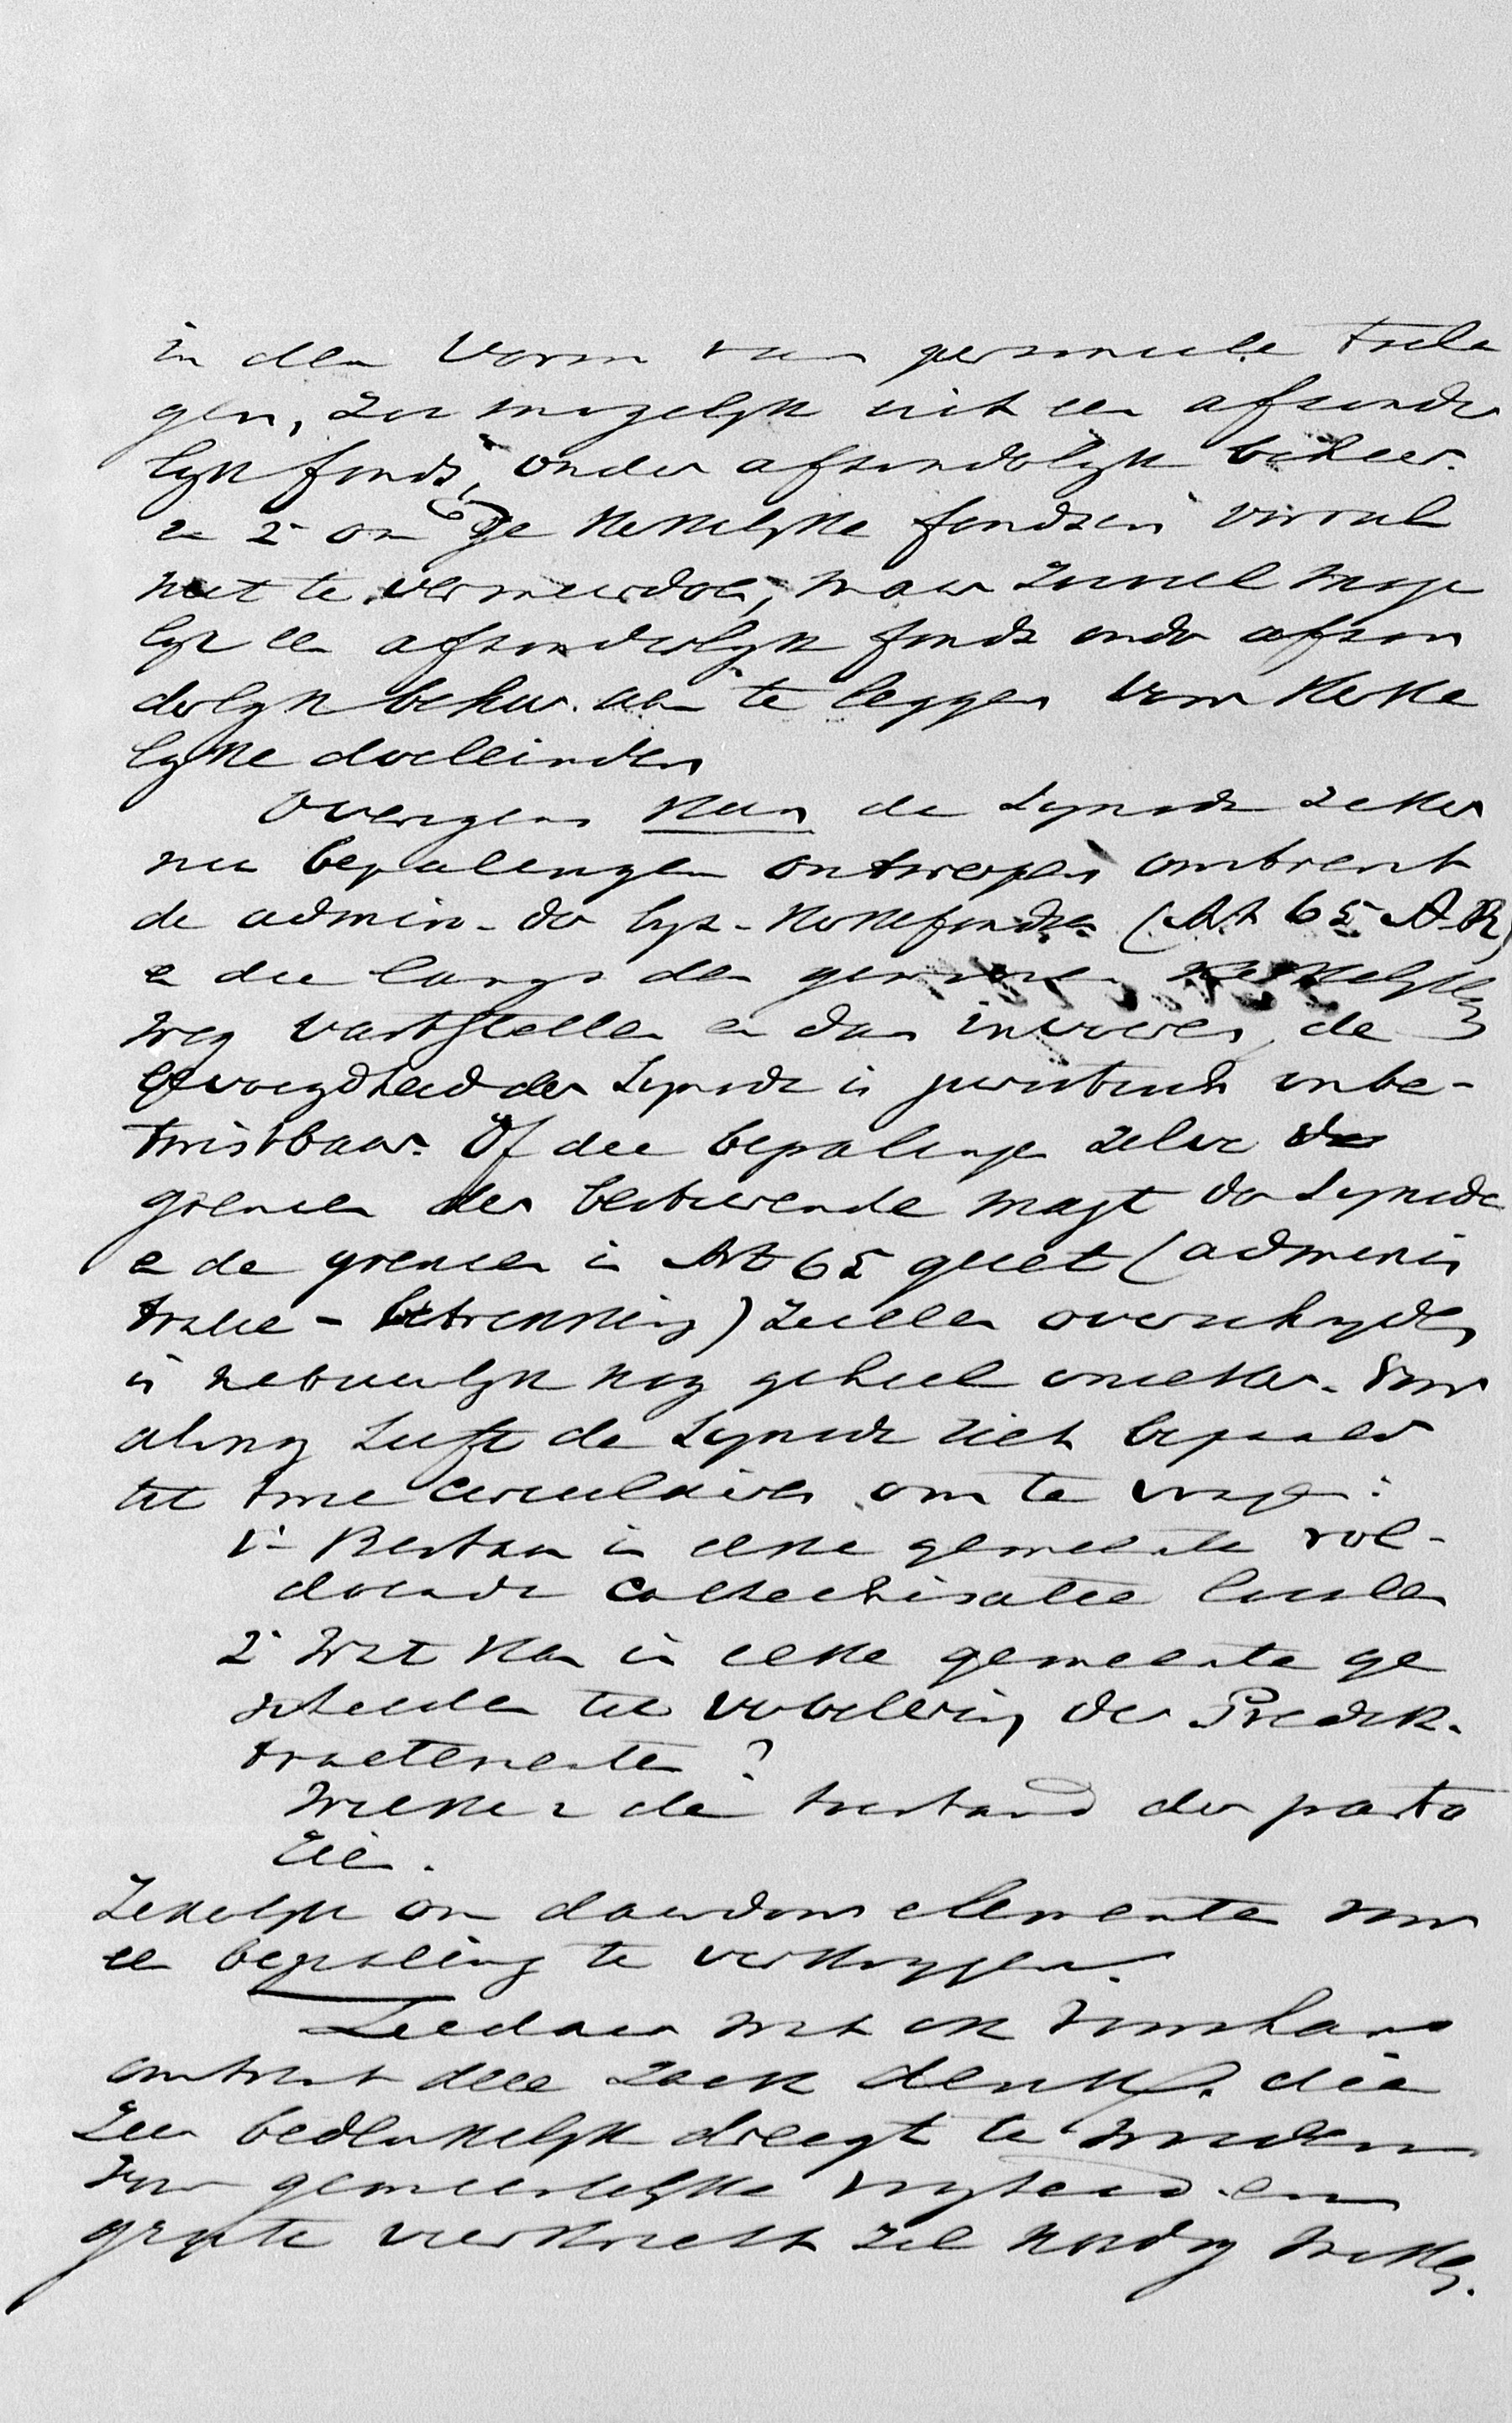 in den vorm van personeele toela
gen, zoo mogelyk uit een afzonder
lyk fonds, onder afzonderlyk beheer.
en 2o om de kerkelyke fondsen vooral
niet te vermeerderen, maar zooveel moge
lyk een afzonderlyk fonds onder afzon
derlyk beheer aan te leggen voor kerke
lyke doeleinden
Overigens kan de Synode zeker
nu bepalingen ontwerpen omtrent
de admin. der kerkefondsen (Art 65 A.R)
en die langs den gewonen kerkelyken
weg vaststellen en dan invoeren, de
bevoegdheid der Synode is juridisch onbe-
twistbaar. Of die bepalingen zelve de
grenzen der besturende magt der Synode
en de grenzen in Art 65 gezet (adminis
tratie - betrekking) zullen overschryden
is natuurlyk nog geheel onzeker. Voor
alsnog heeft de Synode zich bepaald
tot twee circulaires om te vragen:
1o Bestaan in elke gemeente vol-
doende catechisatie localen
2o Wat kan in elke gemeente ge
schieden tot verbetering der Predik.
tractementen?
Welke is de toestand der pasto
rieën.
Zekerlyk om daardoor elementen voor
een bepaling te verkrygen.
Ziedaar wat ik voorshands
omtrent deze zaak denk, die
zeer bedenkelyk dreigt te worden
voor gemeentelyke vryheid en
groote veerkracht zal noodig maken.